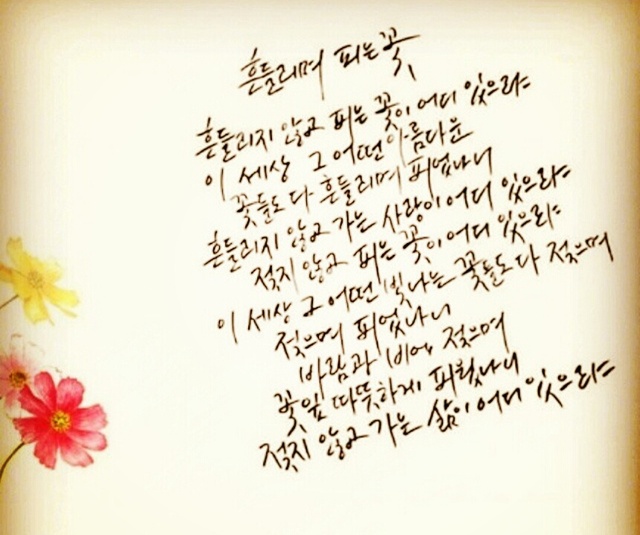 흔들리며 피는 꽃
흔들리지 않고 피는 꽃이 어디 있으랴
이 세상 그 어떤 아름다운
꽃들도 다 흔들리며 피었나니
흔들리지 않고 가는 사랑이 어디 있으랴
젖지 않고 피는 꽃이 어디 있으랴
이 세상 그 어떤 빛나는 꽃들도 다 젖으며
젖으며 피었나니
바람과 비에 젖으며
꽃잎 따뜻하게 피웠나니
젖지 않고 가는 삶이 어디 있으랴